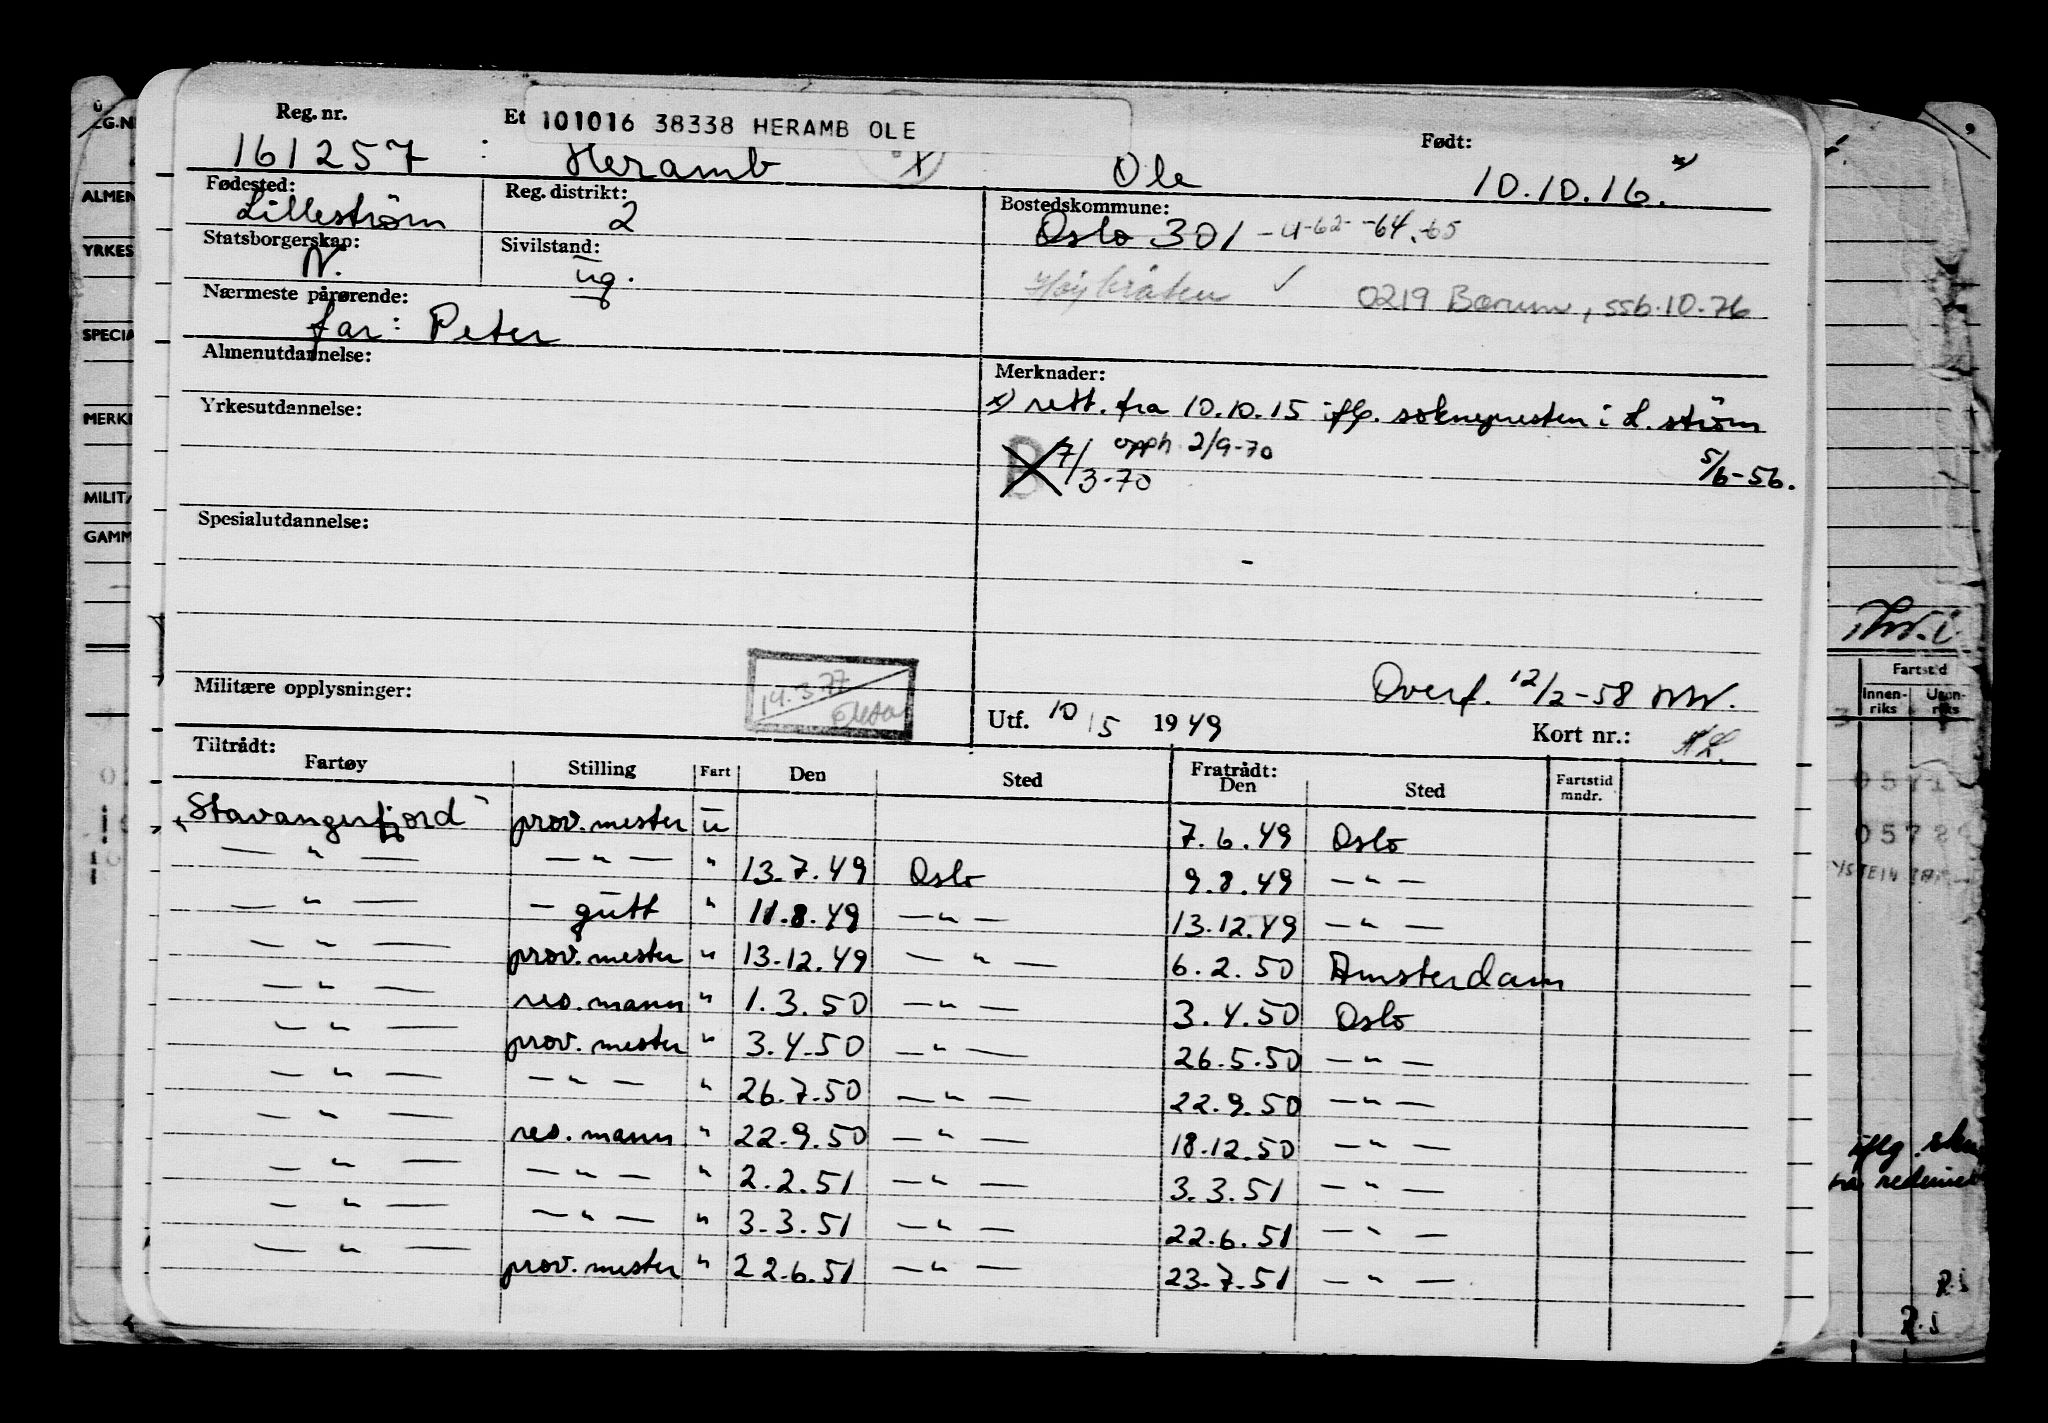 Reg. nr. Et 101016 38338 HERAMB OLE Født:
161257 Heramb Ole 10.10.16. x)
Fødested: Reg. distrikt: Bostedskommune:
Lilleström 2 Oslo 301 -4-62- -64.-65
Statsborgerskap: Sivilstand:
N. ug.
Høybråten ✓ 0219 Bærum, ssb.10.76
Nærmeste pårørende:
far: Peter
Almenutdannelse: Merknader:
x) rett. fra 10.10.15 iflg. soknepresten i L. ström
Yrkesutdannelse:
B 7/3-70 opph 2/9-70 5/6-56.
Spesialutdannelse:
Militære opplysninger: 14.3.77
Overf. 12/2-58
Utf. 10/5 1949 Kort nr.:
Tiltrådt: Fratrådt:
Fartøy Stilling Fart Den Sted Den Sted Fartstid mndr.
"Stavangerfjord" prov. mester u 7.6.49 Oslo
— " — — " — " 13.7.49 Oslo 9.8.49 — " —
— " — — gutt " 11.8.49 — " — 13.12.49 — " —
— " — prov. mester " 13.12.49 — " — 6.2.50 Amsterdam
— " — res. mann " 1.3.50 — " — 3.4.50 Oslo
— " — prov. mester " 3.4.50 — " — 26.5.50 — " —
— " — — " — " 26.7.50 — " — 22.9.50 — " —
— " — res. mann " 22.9.50 — " — 18.12.50 — " —
— " — — " — " 2.2.51 — " — 3.3.51 — " —
— " — — " — " 3.3.51 — " — 22.6.51 — " —
— " — prov. mester " 22.6.51 — " — 23.7.51 — " —
ALMEN
YRKES
SPECIA
MERK
MILIT
GAMM
Fartstid
Innen-riks